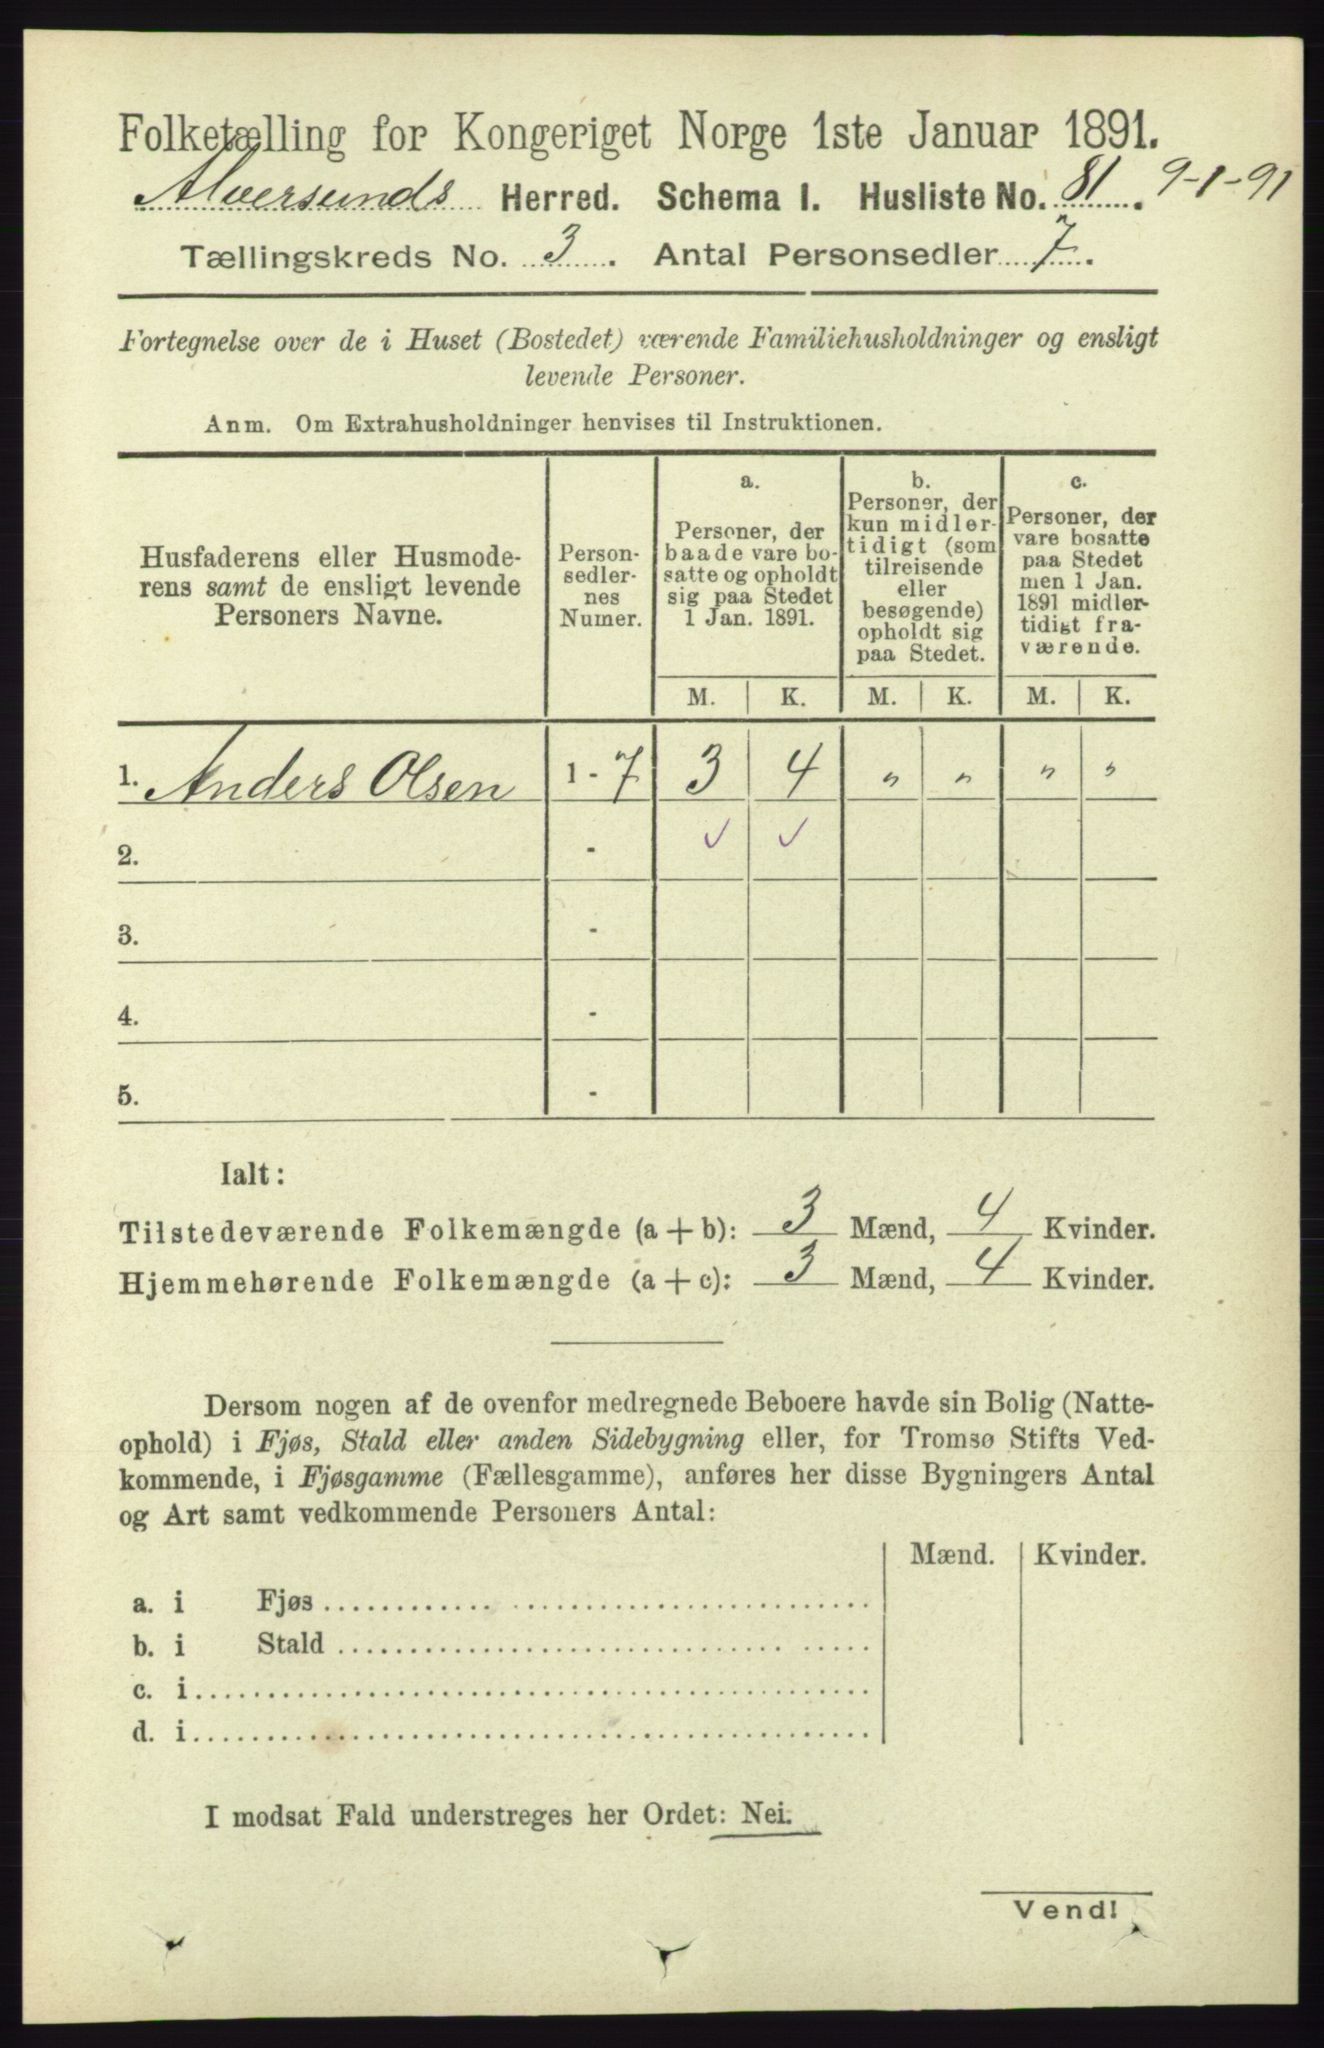 Folketælling for Kongeriget Norge 1ste Januar 1891.
Alversunds Herred. Schema I. Husliste No. 81. 9-1-91
Tællingskreds No. 3. Antal Personsedler 7.
Fortegnelse over de i Huset (Bostedet) værende Familiehusholdninger og ensligt
levende Personer.
Anm. Om Extrahusholdninger henvises til Instruktionen.
Husfaderens eller Husmode-
rens samt de ensligt levende
Personers Navne.
Person-
sedler-
nes
Numer.
a.
Personer, der
baade vare bo-
satte og opholdt
sig paa Stedet
1 Jan. 1891.
b.
Personer, der
kun midler-
tidigt (som
tilreisende
eller
besøgende)
opholdt sig
paa Stedet.
c.
Personer, der
vare bosatte
paa Stedet
men 1 Jan.
1891 midler-
tidigt fra-
værende.
M. K. M. K. M. K.
1. Anders Olsen 1 - 7 3 4 " " " "
2. - ✓ ✓
3. -
4. -
5. -
Ialt:
Tilstedeværende Folkemængde (a + b): 3 Mænd, 4 Kvinder.
Hjemmehørende Folkemængde (a + c): 3 Mænd, 4 Kvinder.
Dersom nogen af de ovenfor medregnede Beboere havde sin Bolig (Natte-
ophold) i Fjøs, Stald eller anden Sidebygning eller, for Tromsø Stifts Ved-
kommende, i Fjøsgamme (Fællesgamme), anføres her disse Bygningers Antal
og Art samt vedkommende Personers Antal:
Mænd. Kvinder.
a. i Fjøs
b. i Stald
c. i
d. i
I modsat Fald understreges her Ordet: Nei.
Vend!